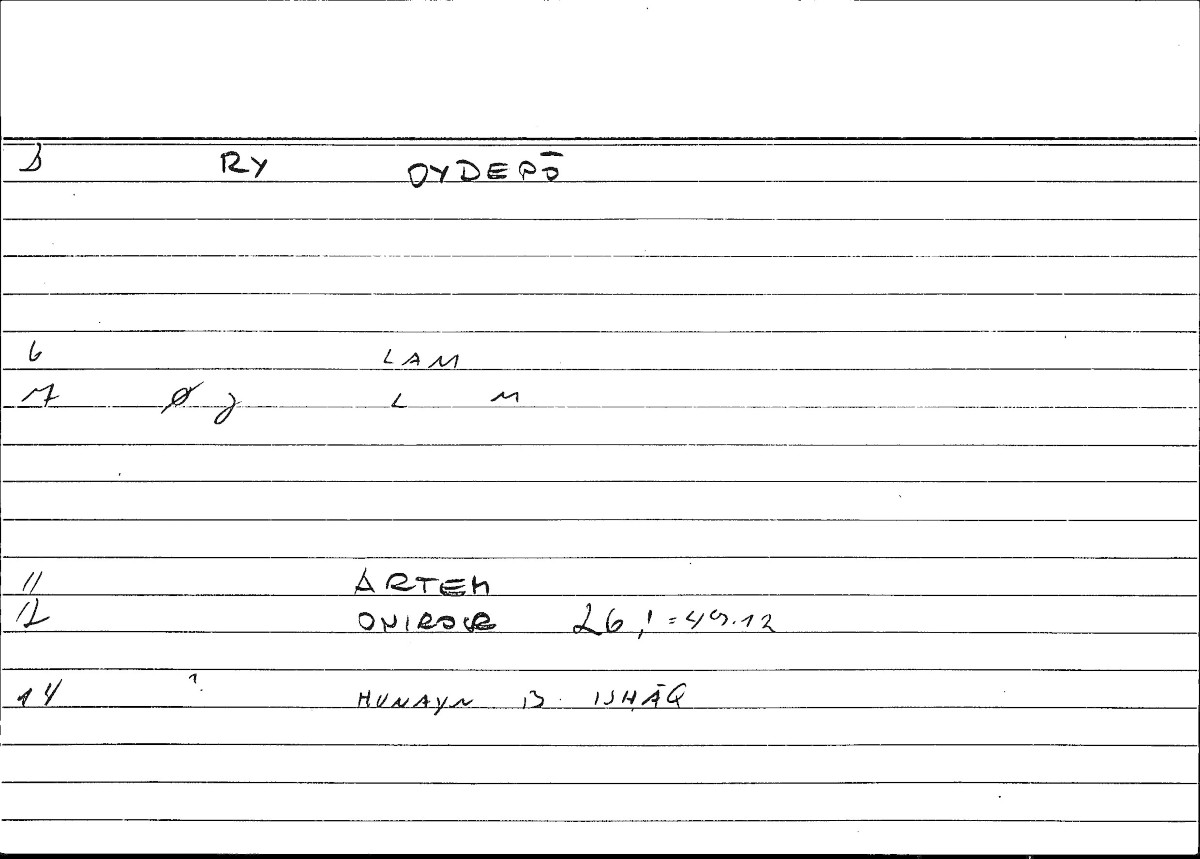 RY OYDEPŌ
6 LAM
7 Ø L M
11 ARTEM
12 ONIROCR 26,1 = 49.12
14 ? ḤUNAYN B. ISḤĀQ